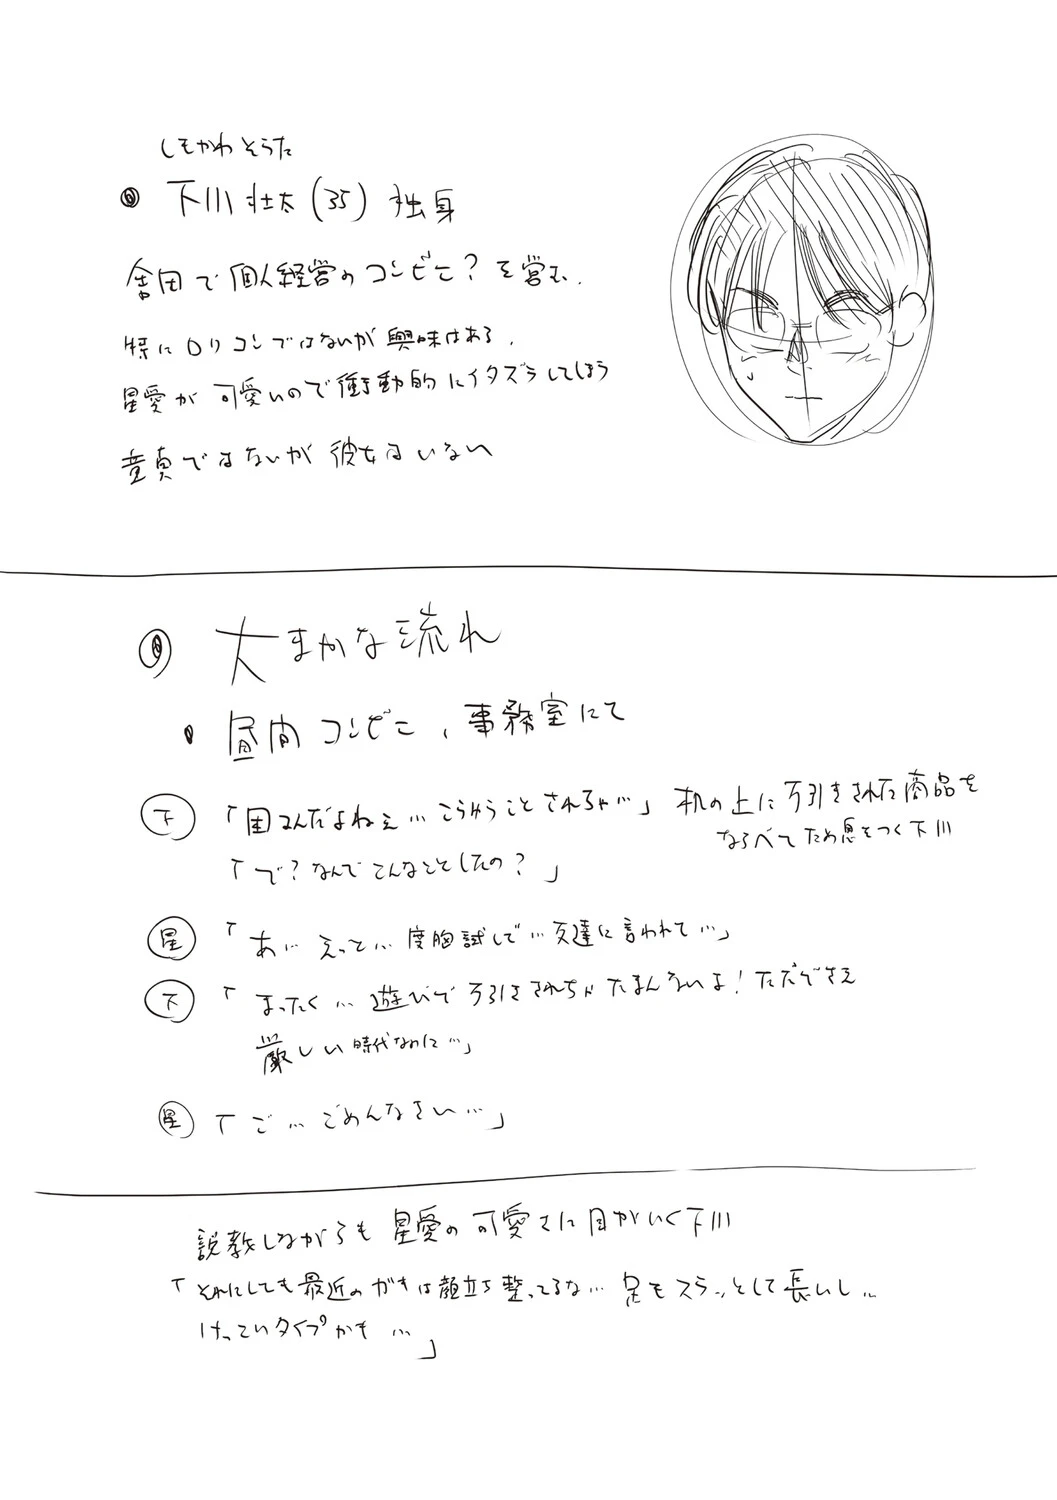 しもかわ そうた
下川 壮太 (35) 独身
田舎で個人経営のコンビニ？を営む.
特にロリコンではないが興味はある.
星愛が可愛いので衝動的にイタズラしてしまう
童貞ではないが彼女はいない
大まかな流れ
昼間 コンビニ、事務室にて
下「困るんだよねぇ… こうゆうことされちゃ…」 机の上に万引きされた商品を
ならべてため息をつく下川
「で？なんでこんなことしたの？」
星「あ… えっと… 度胸試しで… 友達に言われて…」
下「まったく… 遊びで万引きされちゃたまんないよ！ただでさえ
厳しい時代なのに…」
星「ご… ごめんなさい…」
説教しながらも星愛の可愛さに目がいく下川
「それにしても最近のガキは顔立ち整ってるな… 足もスラッとして長いし…
けっこいタイプかも…」